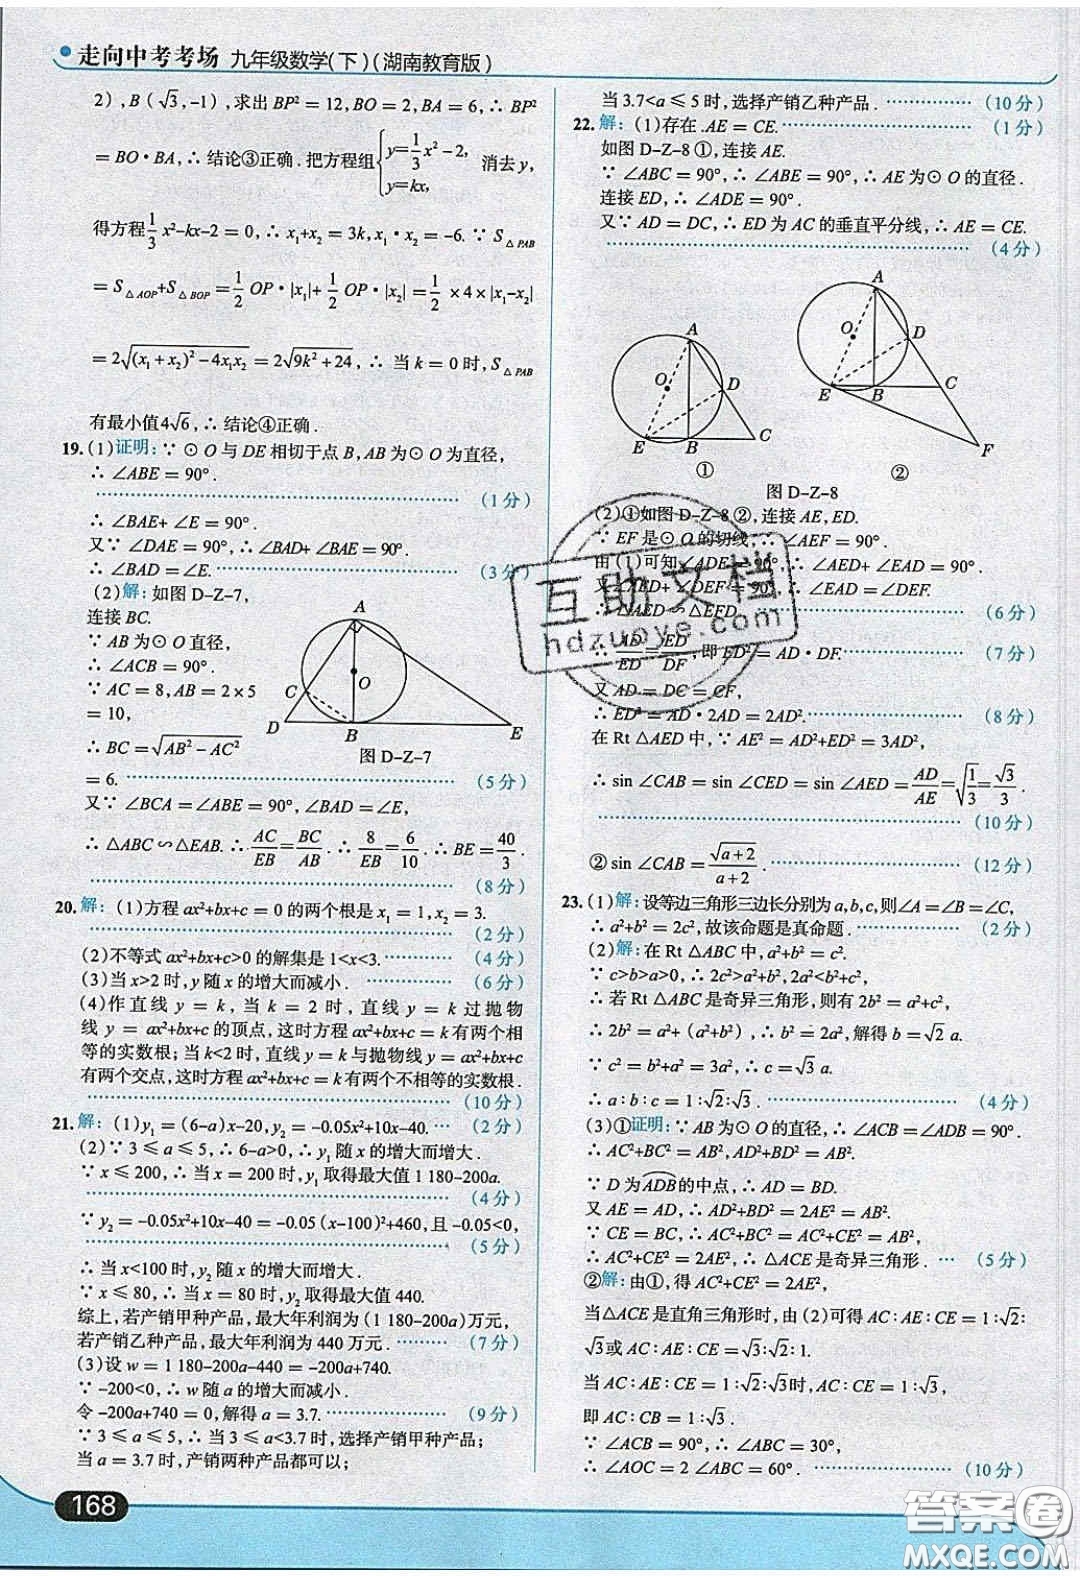 走向中考考场 九年级数学(下)(湖南教育版)
2),B(√3,-1),求出BP²=12,BO=2,BA=6,∴BP²
=BO·BA,∴结论③正确.把方程组{y=1/3x²-2, y=kx, 消去y,
得方程1/3x²-kx-2=0,∴x₁+x₂=3k,x₁·x₂=-6.∵S△PAB
=S△AOP+S△BOP=1/2 OP·|x₁|+1/2 OP·|x₂|=1/2×4×|x₁-x₂|
=2√((x₁+x₂)²-4x₁x₂)=2√(9k²+24),∴当k=0时,S△PAB
有最小值4√6,∴结论④正确.
19.(1)证明:∵⊙O与DE相切于点B,AB为⊙O为直径,
∴∠ABE=90°.
(1分)
∴∠BAE+∠E=90°.
又∵∠DAE=90°,∴∠BAD+∠BAE=90°.
∴∠BAD=∠E. (3分)
(2)解:如图D-Z-7,
连接BC.
∵AB为⊙O直径,
∴∠ACB=90°.
∵AC=8,AB=2×5
=10,
∴BC=√(AB²-AC²)
A
O
C
D
B
E
图D-Z-7
=6. (5分)
又∵∠BCA=∠ABE=90°,∠BAD=∠E,
∴△ABC∽△EAB.∴AC/EB=BC/AB.∴8/EB=6/10.∴BE=40/3.
(8分)
20.解:(1)方程ax²+bx+c=0的两个根是x₁=1,x₂=3.
(2分)
(2)不等式ax²+bx+c>0的解集是1<x<3. (4分)
(3)当x>2时,y随x的增大而减小. (6分)
(4)作直线y=k,当k=2时,直线y=k过抛物
线y=ax²+bx+c的顶点,这时方程ax²+bx+c=k有两个相
等的实数根;当k<2时,直线y=k与抛物线y=ax²+bx+c
有两个交点,这时方程ax²+bx+c=k有两个不相等的实数根.
(10分)
21.解:(1)y₁=(6-a)x-20,y₂=-0.05x²+10x-40. (2分)
(2)∵3≤a≤5,∴6-a>0,∴y₁随x的增大而增大.
∵x≤200,∴当x=200时,y₁取得最大值1 180-200a.
(4分)
∵y₂=-0.05x²+10x-40=-0.05(x-100)²+460,且-0.05<0,
(5分)
∴当x<100时,y₂随x的增大而增大.
∵x≤80,∴当x=80时,y₂取得最大值440.
综上,若产销甲种产品,最大年利润为(1 180-200a)万元,
若产销乙种产品,最大年利润为440万元. (7分)
(3)设w=1 180-200a-440=-200a+740.
∵-200<0,∴w随a的增大而减小.
令-200a+740=0,解得a=3.7. (9分)
∵3≤a≤5,∴当3≤a<3.7时,选择产销甲种产品;
当a=3.7时,产销两种产品都可以;
当3.7<a≤5时,选择产销乙种产品. (10分)
22.解:(1)存在.AE=CE. (1分)
如图D-Z-8①,连接AE.
∵∠ABC=90°,∴∠ABE=90°,∴AE为⊙O的直径.
连接ED,∴∠ADE=90°.
又∵AD=DC,∴ED为AC的垂直平分线,∴AE=CE.
(4分)
A
O
D
E
B
C
①
A
O
D
E
B
C
F
②
图D-Z-8
(2)①如图D-Z-8②,连接AE,ED.
∵EF是⊙O的切线,∴∠AEF=90°.
由(1)可知∠ADE=90°,∴∠AED+∠EAD=90°.
又∵∠AED+∠DEF=90°,∴∠EAD=∠DEF.
∴△AED∽△EFD. (6分)
∴AD/ED=ED/DF,即ED²=AD·DF. (7分)
又AD=DC=CF,
∴ED²=AD·2AD=2AD². (8分)
在Rt△AED中,∵AE²=AD²+ED²=3AD²,
∴sin∠CAB=sin∠CED=sin∠AED=AD/AE=√(1/3)=√3/3.
(10分)
②sin∠CAB=√(a+2)/(a+2). (12分)
23.(1)解:设等边三角形三边长分别为a,b,c,则∠A=∠B=∠C,
∴a²+b²=2c²,故该命题是真命题. (2分)
(2)解:在Rt△ABC中,a²+b²=c².
∵c>b>a>0,∴2c²>a²+b²,2a²<b²+c².
∴若Rt△ABC是奇异三角形,则有2b²=a²+c²,
∴2b²=a²+(a²+b²),∴b²=2a²,解得b=√2a.
∵c²=b²+a²=3a²,∴c=√3a.
∴a∶b∶c=1∶√2∶√3. (4分)
(3)①证明:∵AB为⊙O的直径,∴∠ACB=∠ADB=90°.
∴AC²+BC²=AB²,AD²+BD²=AB².
∵D为ADB的中点,∴AD=BD.
又AE=AD,∴AD²+BD²=2AD²=2AE²=AB².
∵CE=BC,∴AC²+BC²=AC²+CE²=AB²,
∴AC²+CE²=2AE²,∴△ACE是奇异三角形. (5分)
②解:由①,得AC²+CE²=2AE²,
当△ACE是直角三角形时,由(2)可得AC∶AE∶CE=1∶√2∶
√3或AC∶AE∶CE=√3∶√2∶1.
当AC∶AE∶CE=1∶√2∶√3时,AC∶CE=1∶√3,
即AC∶CB=1∶√3.
∵∠ACB=90°,∴∠ABC=30°,
∴∠AOC=2∠ABC=60°. (10分)
168
互助文档
hdzuoye.com
答案圈
MXQE.COM